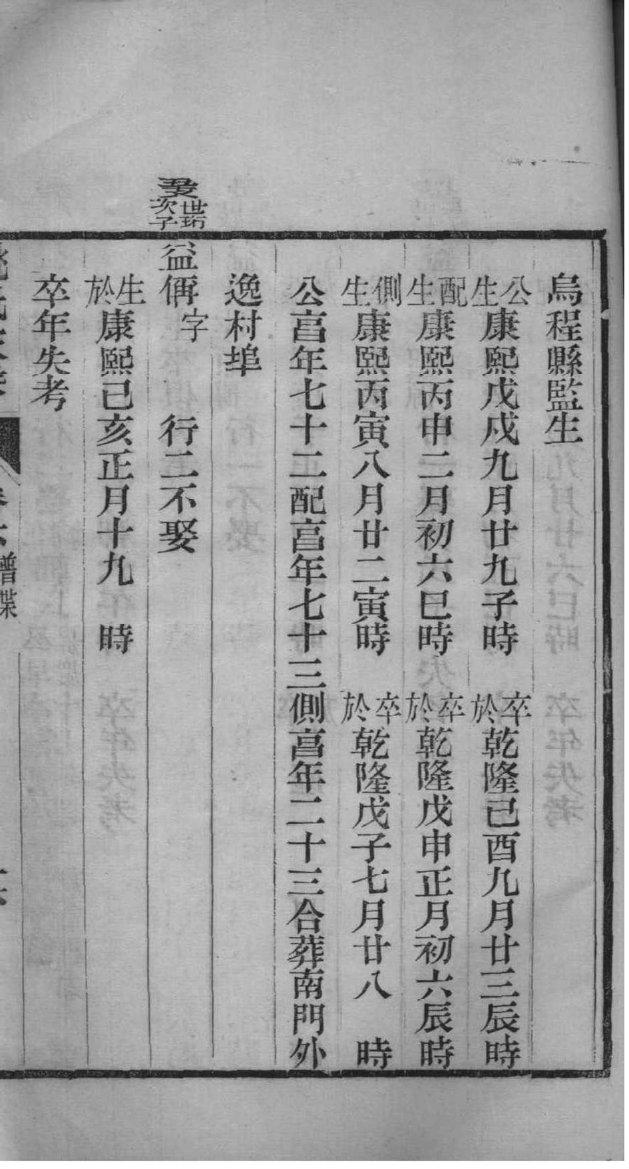 烏程縣監生
公生康熙戊戌九月廿九子時　卒於乾隆己酉九月廿三辰時
配生康熙丙申二月初六巳時　卒於乾隆戊申正月初六辰時
側生康熙丙寅八月廿二寅時　卒於乾隆戊子七月廿八　時
公亯年七十二配亯年七十三側亯年二十三合葬南門外
逸村埠
世
次子
益偁字　　行二不娶
生於康熙己亥正月十九　時
卒年失考
譜牒